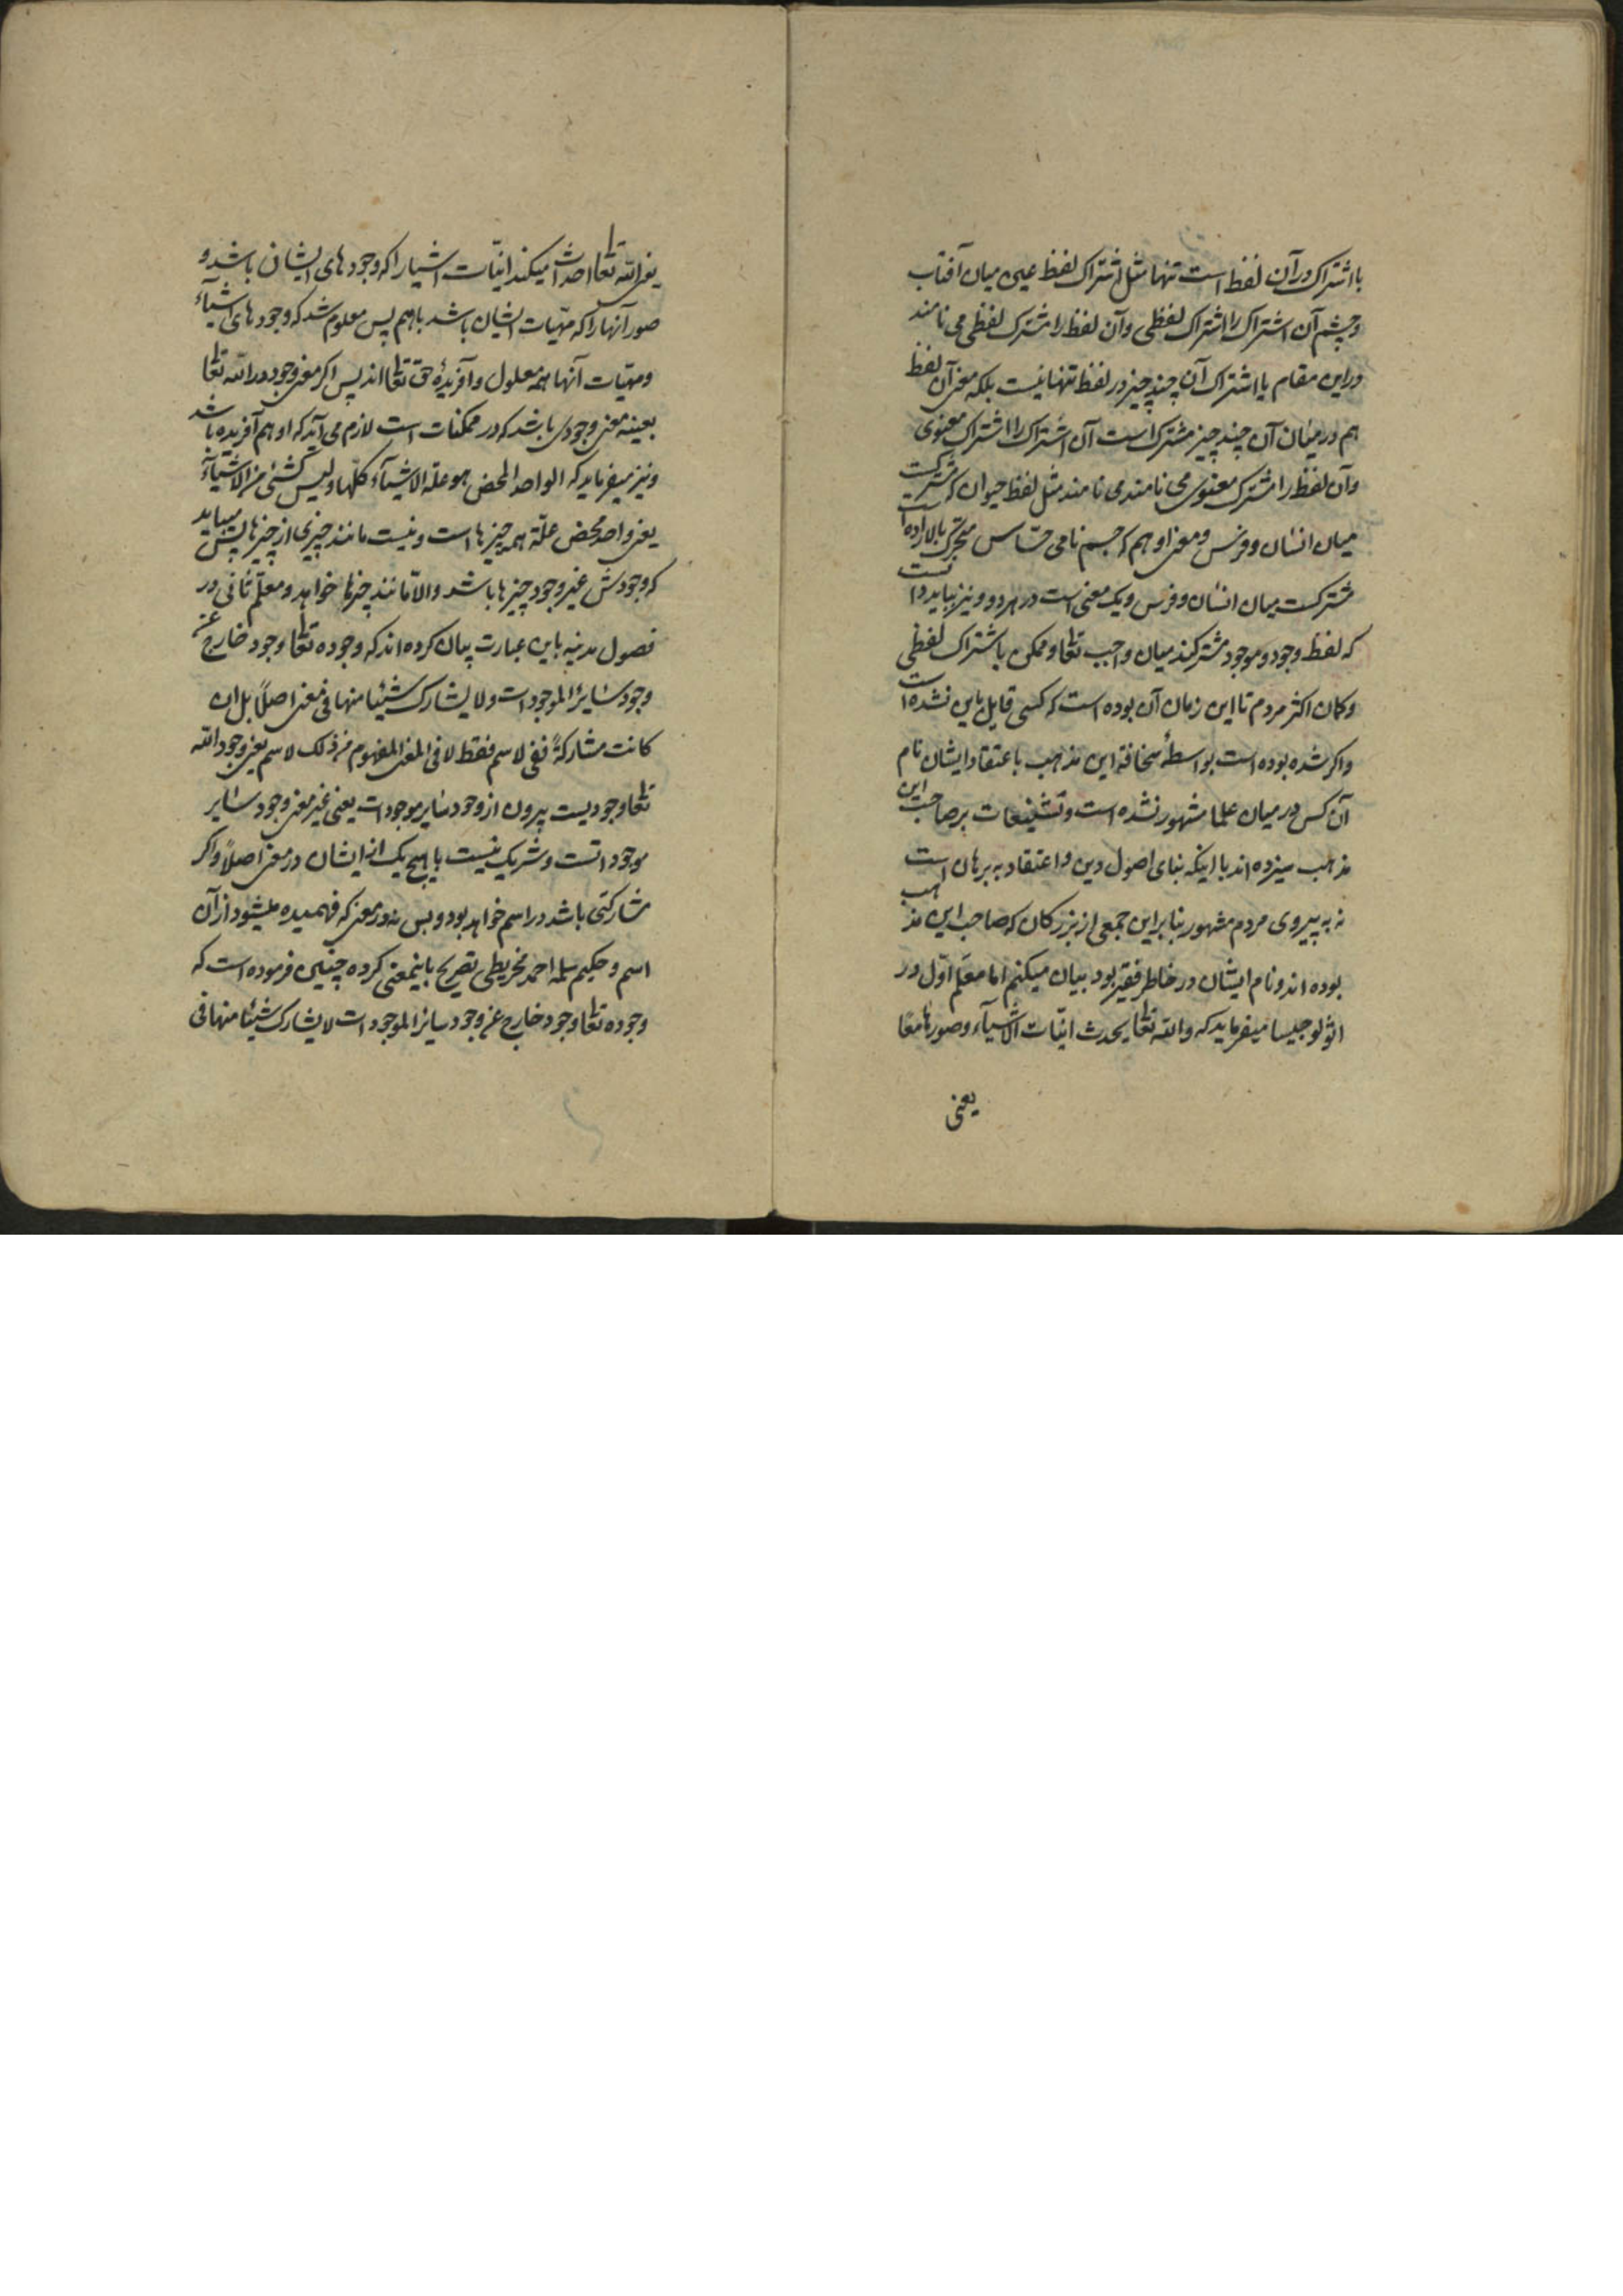 یا اشتراک در آن لفظ است تنها مثل اشتراک لفظ عین میان آفتاب
و چشم آن اشتراک را اشتراک لفظی و آن لفظ را مشترک لفظی می نامند
و در این مقام یا اشتراک آن چند چیز در لفظ تنها نیست بلکه معنی آن لفظ
هم در میان آن چند چیز مشترک است آن اشتراک را اشتراک معنوی
و آن لفظ را مشترک معنوی می نامند می نامند مثل لفظ حیوان که مشترکست
میان انسان و فرس و معنی او هم که جسم نامی حسّاس متحرّک بالاراده است
مشترکست میان انسان و فرس و یک معنی است در هر دو و نیز بباید دانست
که لفظ وجود و موجود مشترکند میان واجب تعا و ممکن باشتراک لفظی
و کمان اکثر مردم تا این زمان آن بوده است که کسی قایل باین نشده است
و اکر شده بوده است بواسطهٔ سخافة این مذهب باعتقاد ایشان نام
آن کس در میان علما مشهور نشده است و تشنیعات بر صاحب این
مذهب میزده اند با اینکه بنای اصول دین و اعتقاد به برهان است
نه به پیروی مردم مشهور بنا براین جمعی از بزرکان که صاحب این مذهب
بوده اند و نام ایشان در خاطر فقیر بود بیان میکنم اما معلّم اوّل در
اثولوجیسا میفرماید که والله تعا یحدث انیّات الاشیآء و صورها معًا
یعنی
یعنی الله تعا احداث میکند انیّات اشیا را که وجودهای ایشان باشد و
صور آنها را که مهیّات ایشان باشد باهم پس معلوم شد که وجودهای اشیآء
و مهیّات آنها همه معلول و آفریدهٔ حق تعا اند پس اکر معنی وجود در الله تعا
بعینه معنی وجودی باشد که در ممکنات است لازم می آید که او هم آفریده باشد
و نیز میفرماید که الواحد المحض هو علة الاشیآء کلّها و لیس کشئی من الاشیآء
یعنی واحد محض علّة همه چیزها است و نیست مانند چیزی از چیزها پس میباید
که وجودش غیر وجود چیزها باشد و الّا مانند چیزها خواهد و معلّم ثانی در
فصول مدنیه باین عبارت بیان کرده اند که وجوده تعا وجود خارج عن
وجود سایر الموجودات و لا یشارک شیئا منها فی معنی اصلاً بل ان
کانت مشارکةً ففی لاسم فقط لا فی المعنی المفهوم من ذلک لاسم یعنی وجود الله
تعا وجودیست بیرون از وجود سایر موجودات یعنی غیر معنی وجود سایر
موجوداتست و شریک نیست با هیچ یک از ایشان در معنی اصلاً و اکر
مشارکتی باشد در اسم خواهد بود و بس نه در معنی که فهمیده میشود از آن
اسم و حکیم احمد مجریطی تصریح باینمعنی کرده چنین فرموده است که
وجوده تعا وجود خارج عن وجود سایر الموجودات لا یشارک شیئا منها فی